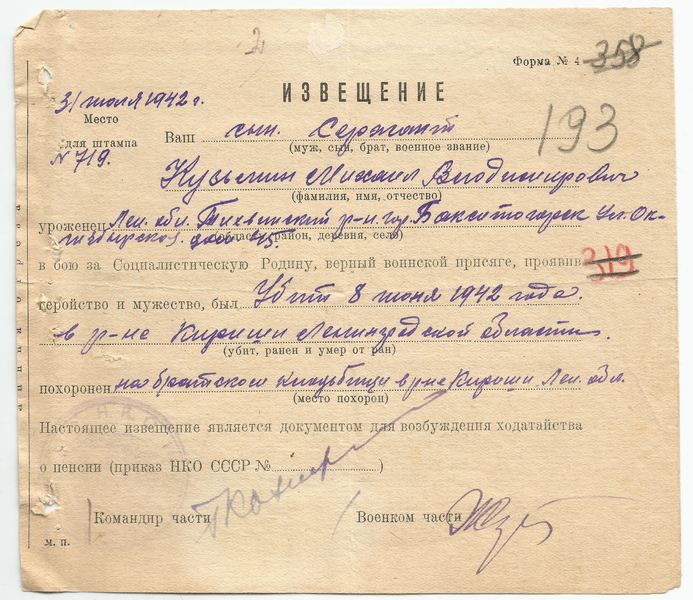 2
Форма № 4 358
31 июля 1942 г.
ИЗВЕЩЕНИЕ
193
Место
для штампа
N 719.
Ваш сын. Сержант
(муж, сын, брат, военное звание)
Кузьмин Михаил Владимирович
(фамилия, имя, отчество)
уроженец Лен. обл. Тихвинский р-н. гор. Бокситогорск ул. Ок-
тябрьской. дом 45
(область, район, деревня, село)
в бою за Социалистическую Родину, верный воинской присяге, проявив
319
геройство и мужество, был Убит 8 июня 1942 года.
в р-не Кириши Ленинградской области.
(убит, ранен и умер от ран)
похоронен на братском кладбище в р-не Кириши Лен. обл.
(место похорон)
Настоящее извещение является документом для возбуждения ходатайства
о пенсии (приказ НКО СССР №)
Командир части
Военком части
м. п.
линия отреза